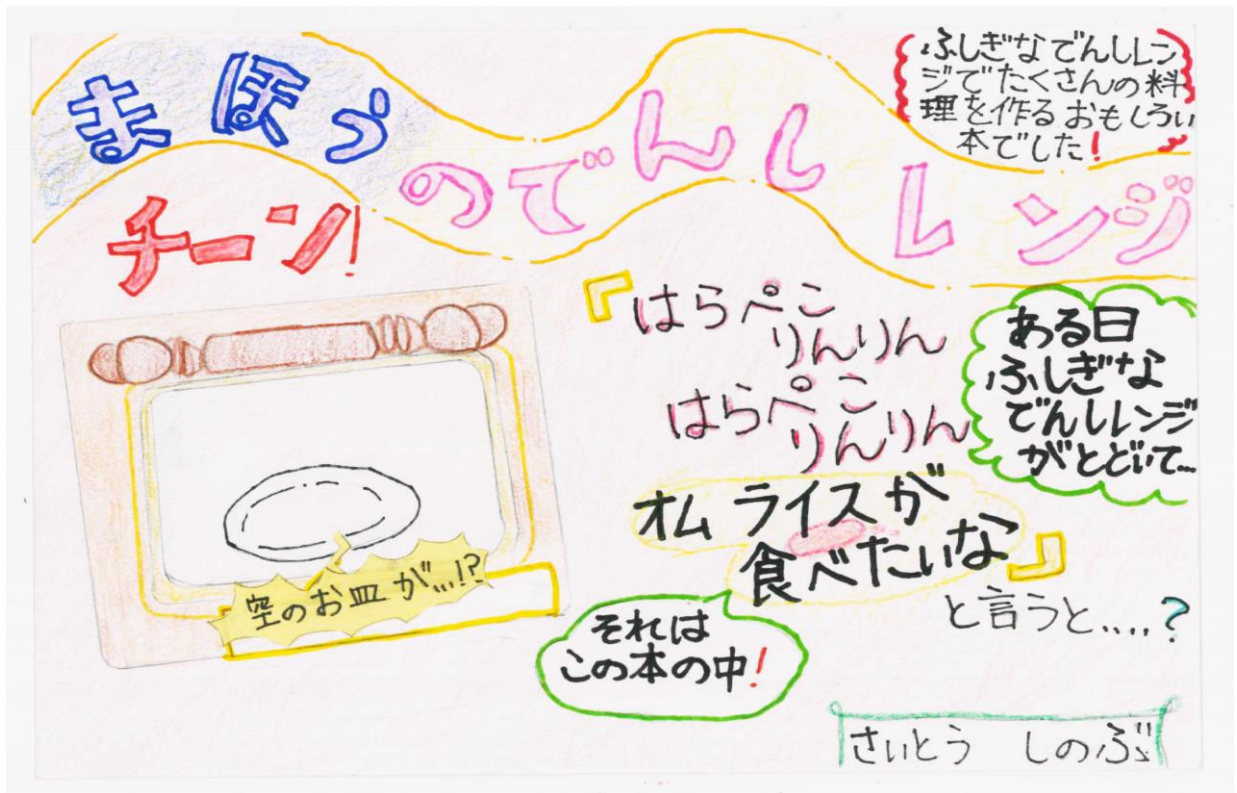 まほう
のでんしレンジ
ふしぎなでんしレン
ジでたくさんの料
理を作るおもしろい
本でした!
チーン!
『はらぺこ
りんりん
はらぺこ
りんりん
オムライスが
食べたいな』
と言うと....?
ある日
ふしぎな
でんしレンジ
がとどいて...
空のお皿が...!?
それは
この本の中!
さいとう しのぶ